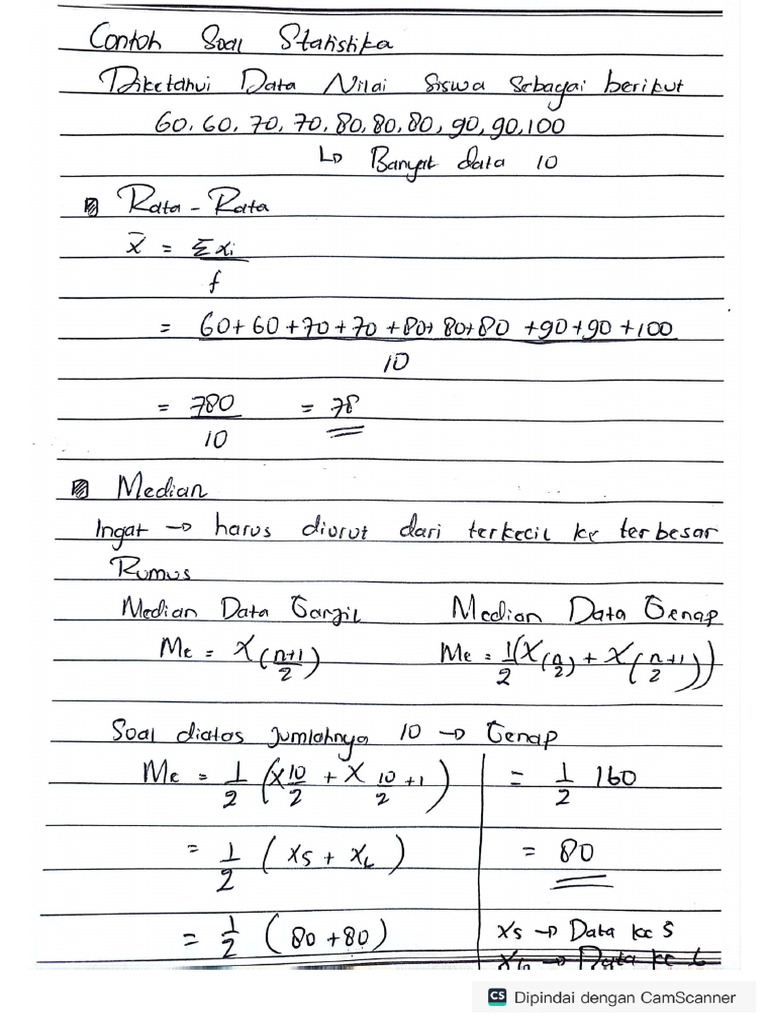 Contoh Soal Statistika
Diketahui Data Nilai Siswa Sebagai berikut
60, 60, 70, 70, 80, 80, 80, 90, 90, 100
↳ Banyak data 10
Rata - Rata
x̄ = Σxi / f
= 60 + 60 + 70 + 70 + 80 + 80 + 80 + 90 + 90 + 100 / 10
= 780 / 10 = 78
Median
Ingat → harus diurut dari terkecil ke terbesar
Rumus
Median Data Ganjil Median Data Genap
Me = X((n+1)/2) Me = 1/2 (X(n/2) + X((n+1)/2))
Soal diatas Jumlahnya 10 → Genap
Me = 1/2 (X 10/2 + X 10/2 +1) = 1/2 160
= 1/2 (X5 + X6) = 80
= 1/2 (80 + 80) X5 → Data ke 5
X6 → Data ke 6
CS Dipindai dengan CamScanner